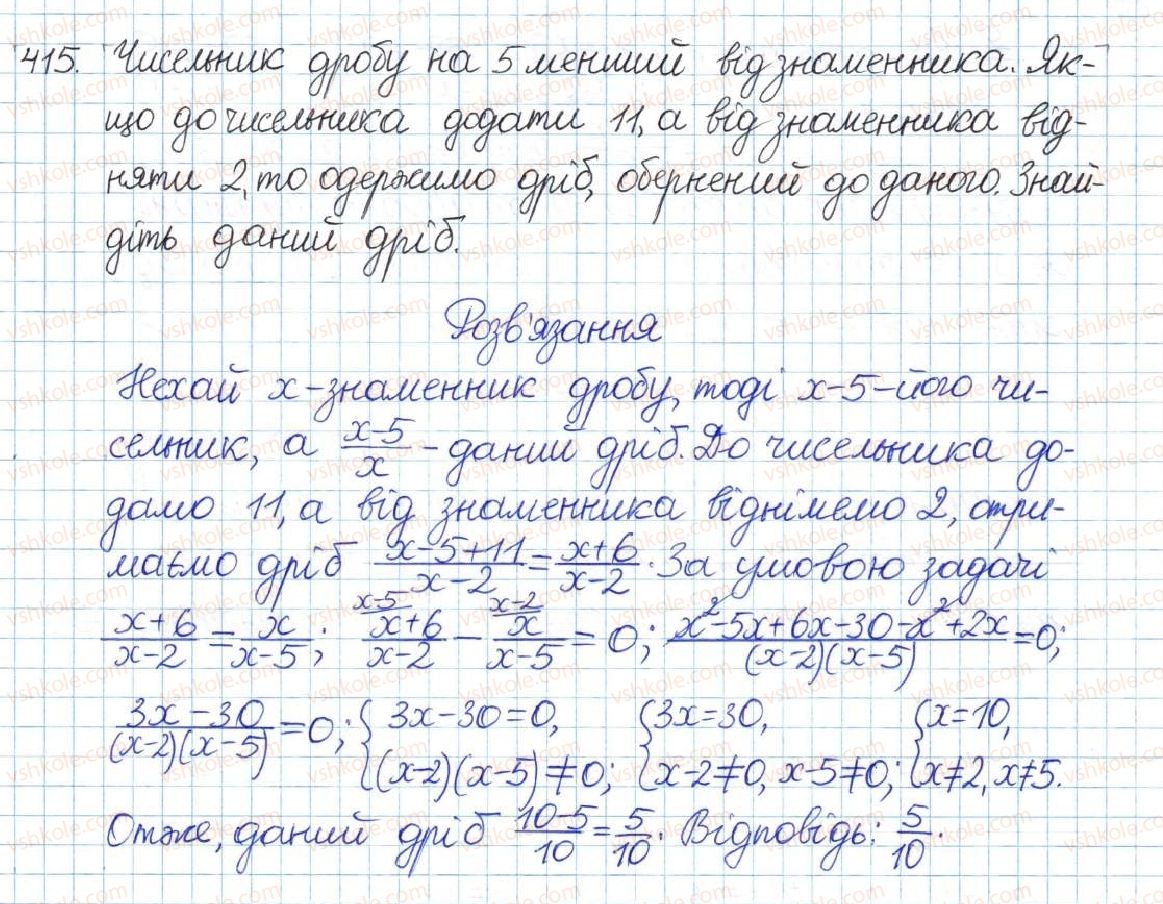 415. Чисельник дробу на 5 менший від знаменника. Як-
що до чисельника додати 11, а від знаменника від-
няти 2, то одержимо дріб, обернений до даного. Знай-
діть даний дріб.
Розв'язання
Нехай x - знаменник дробу, тоді x-5 - його чи-
сельник, а (x-5)/x - даний дріб. До чисельника до-
дамо 11, а від знаменника віднімемо 2, отри-
маємо дріб (x-5+11)/(x-2) = (x+6)/(x-2). За умовою задачі
(x+6)/(x-2) = x/(x-5); ^{x-5}(x+6)/(x-2) - ^{x-2}x/(x-5) = 0; (x²-5x+6x-30-x²+2x)/((x-2)(x-5)) = 0;
(3x-30)/((x-2)(x-5)) = 0; { 3x-30=0, (x-2)(x-5)≠0; { 3x=30, x-2≠0, x-5≠0; { x=10, x≠2, x≠5.
Отже, даний дріб (10-5)/10 = 5/10. Відповідь: 5/10.
vshkole.com